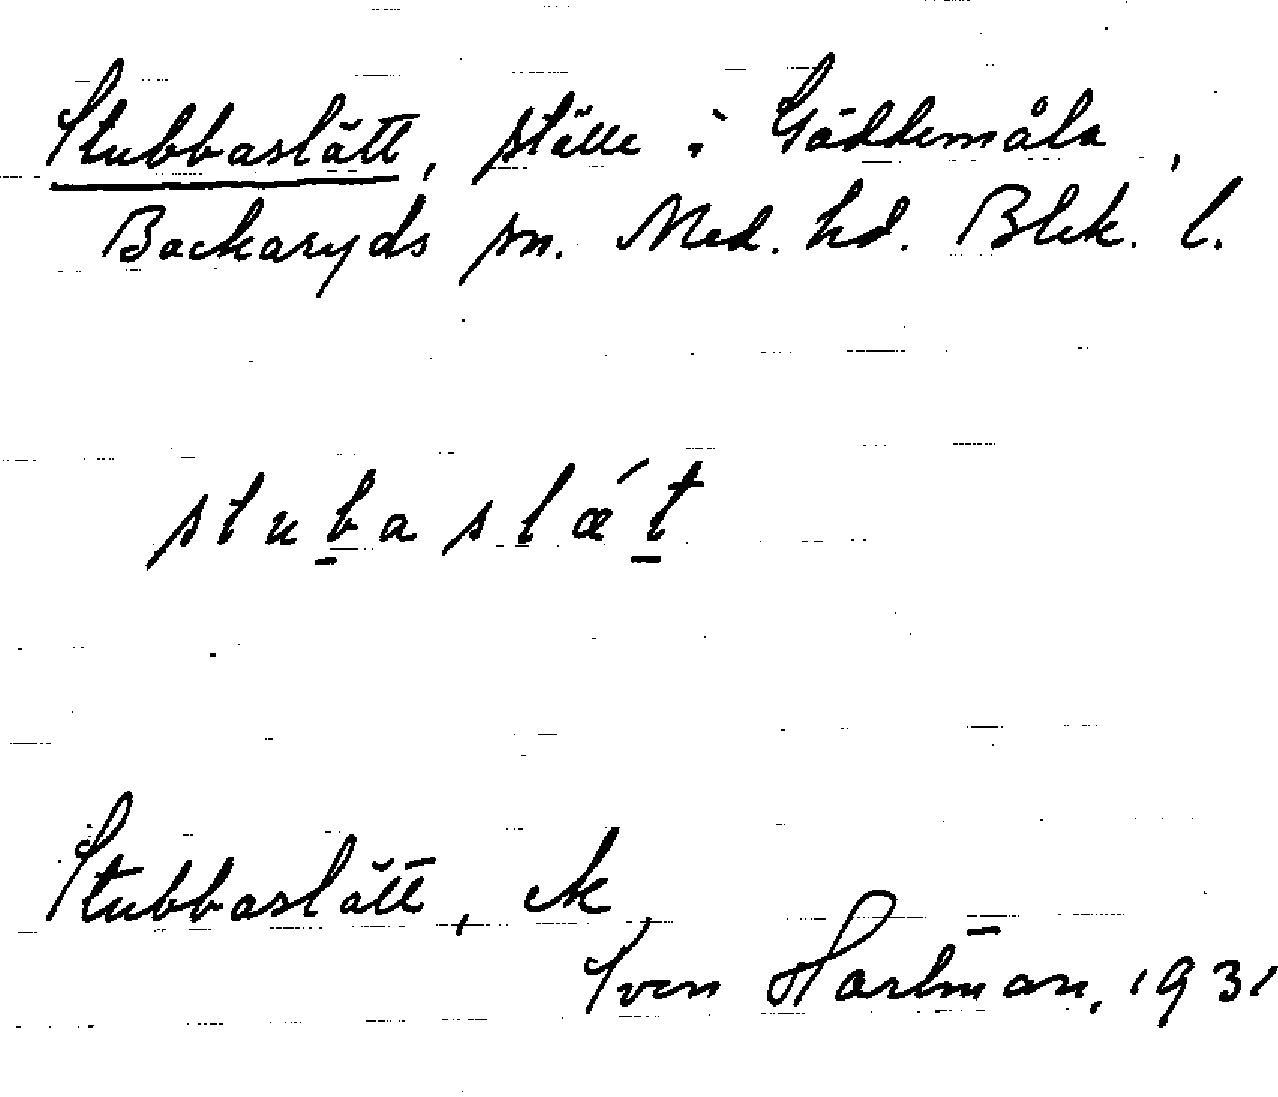 Stubbaslätt, ställe i Gäddemåla,
Backaryds sn. Med. hd. Blek. l.
stub̲aslǽt̲
Stubbaslätt, ek
Sven Harlm̄an, 1931